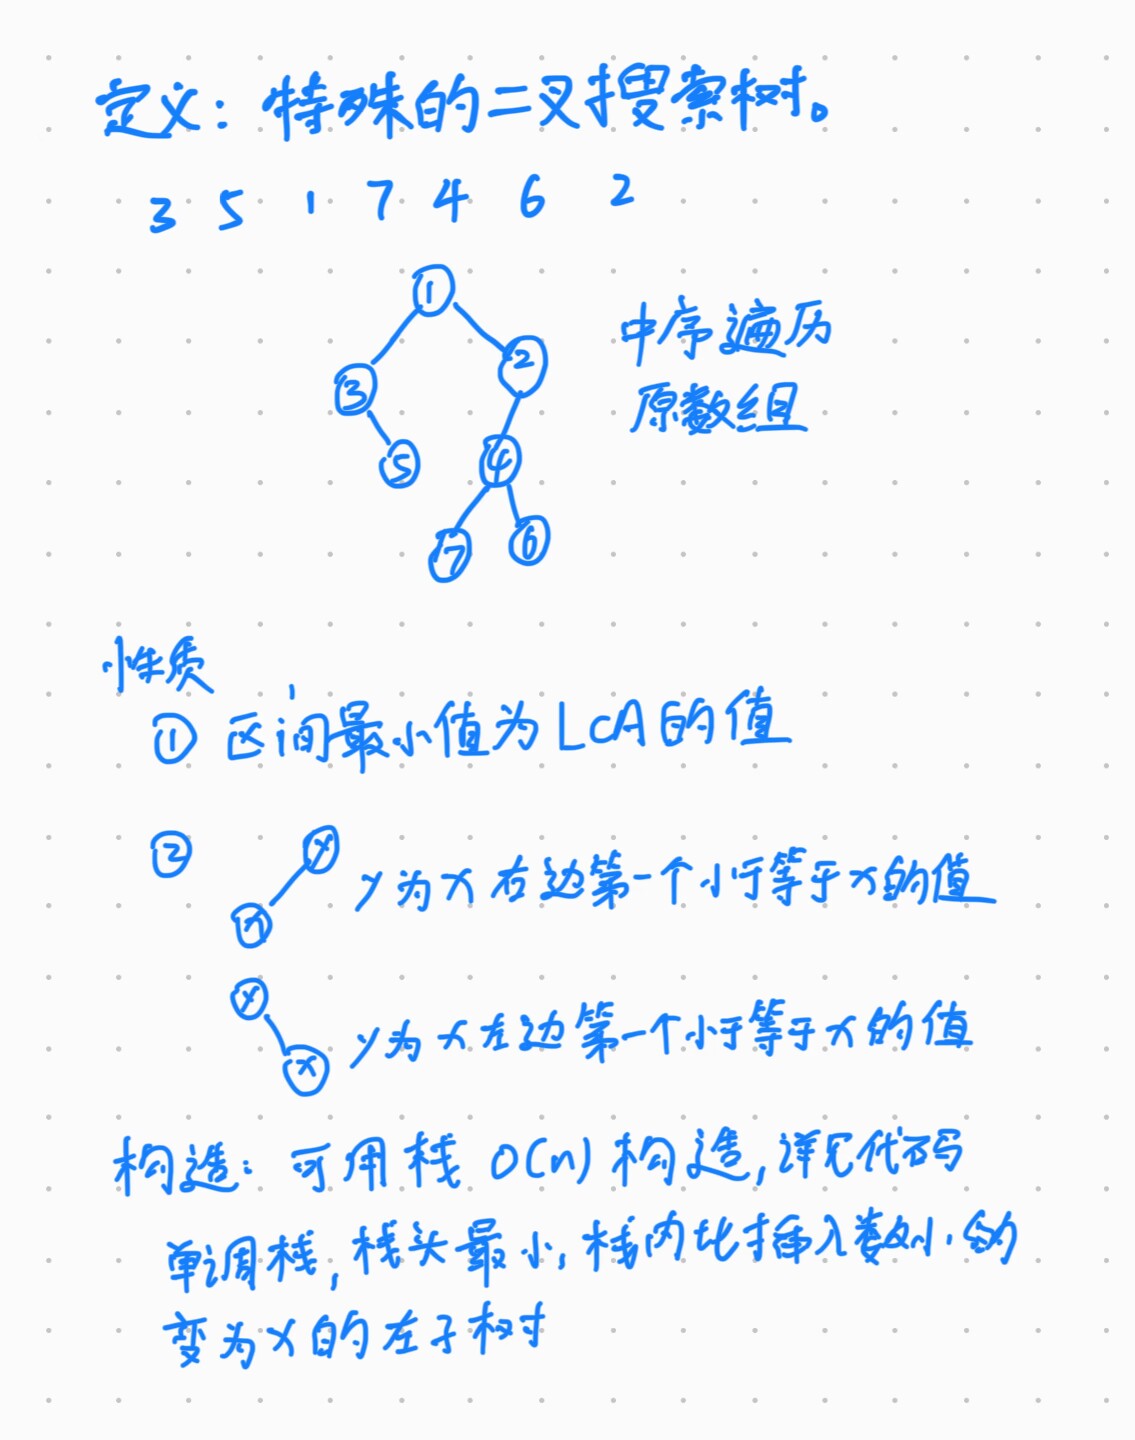 定义：特殊的二叉搜索树。
3 5 1 7 4 6 2
1
2
3
5
4
7
6
中序遍历
原数组
性质
① 区间最小值为LCA的值
② y
x
y为x右边第一个小于等于x的值
y
x
y为x左边第一个小于等于x的值
构造：可用栈 O(n) 构造,详见代码
单调栈,栈头最小,栈内比插入数小的
变为x的左子树